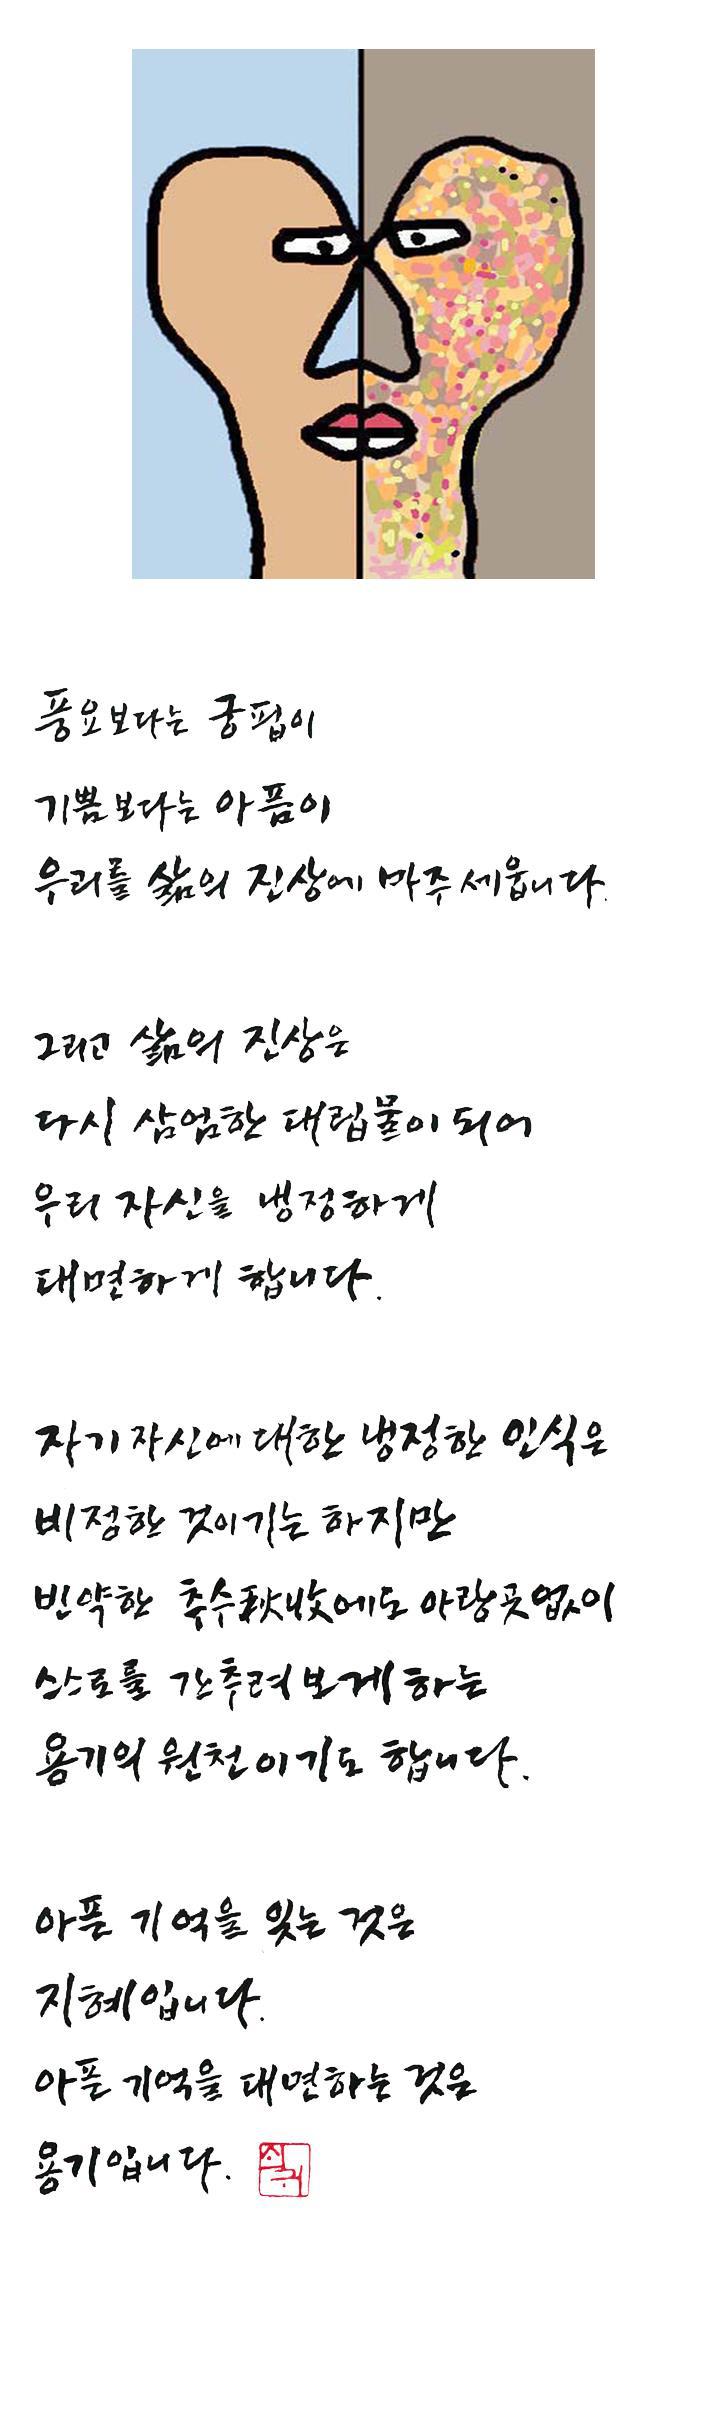 풍요보다는 궁핍이
기쁨보다는 아픔이
우리를 삶의 진상에 마주 세웁니다.
그리고 삶의 진상은
다시 삼엄한 대립물이 되어
우리 자신을 냉정하게
대면하게 합니다.
자기 자신에 대한 냉정한 인식은
비정한 것이기는 하지만
빈약한 추수秋收에도 아랑곳없이
스스로를 간추려보게 하는
용기의 원천이기도 합니다.
아픈 기억을 잊는 것은
지혜입니다.
아픈 기억을 대면하는 것은
용기입니다.